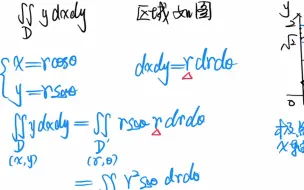 ∬_D y dxdy 区域如图
{ x = r cosθ
y = r sinθ
dxdy = r dr dθ
∬_D y dxdy = ∬_D' r sinθ r dr dθ
(x,y) (r,θ)
= ∬ r² sinθ dr dθ
y
2
√2
0